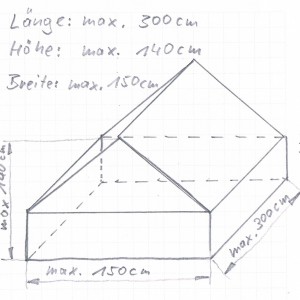 Länge: max. 300cm
Höhe: max. 140cm
Breite: max. 150cm
max 140cm
max. 300cm
max. 150cm